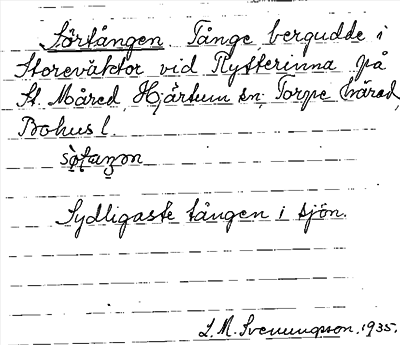 Sörtången. Tånge, bergudde i
Storeväktor vid Nytterinna på
St. Måred, Hjärtum sn, Torpe härad,
Bohusl.
Sydligaste tången i sjön.
L. M. Svenungsson. 1935.